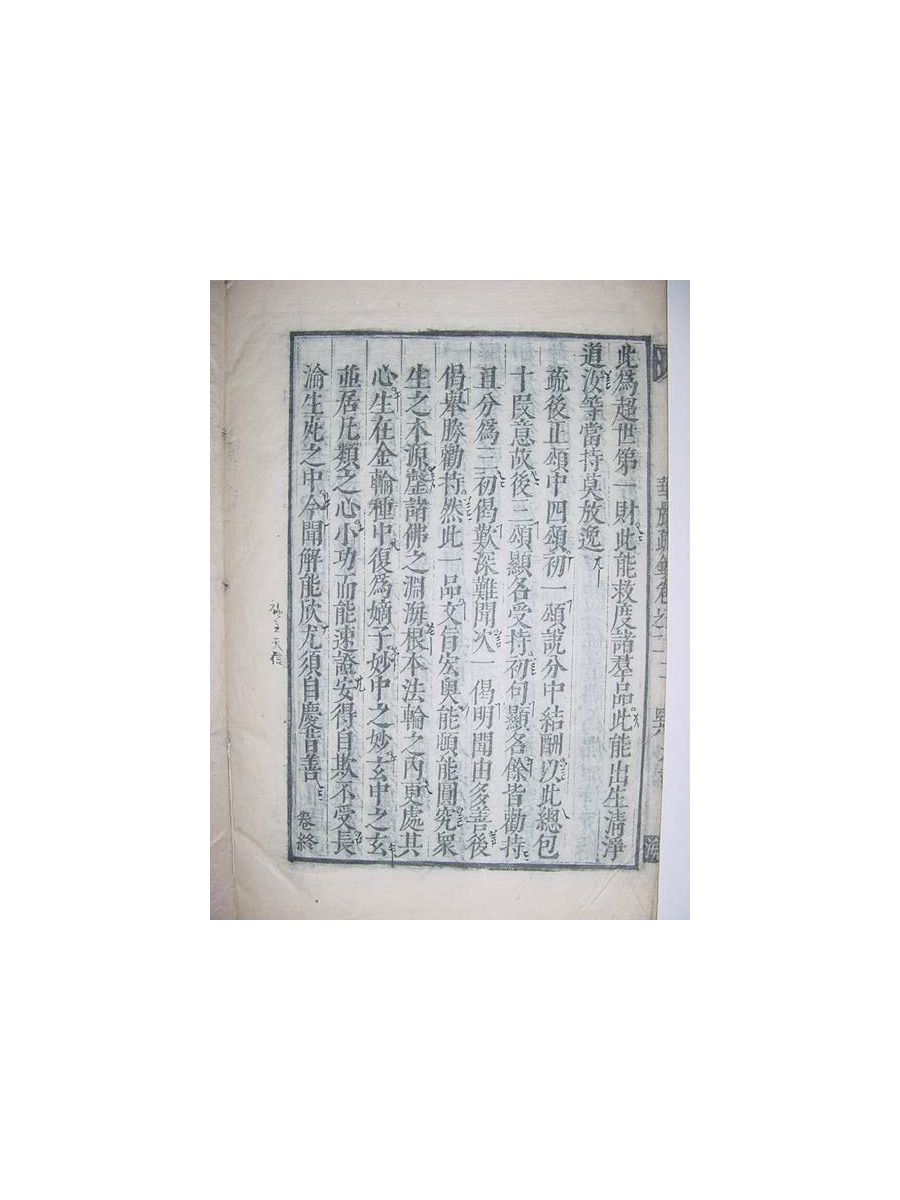 此爲超世第一財此能救度諸羣品此能出生清淨
道汝等當持莫放逸
疏後正頌中四頌初一頌說分中結酬以此總包
十段意故後三頌顯名受持初句顯名餘皆勸持
且分爲三初偈歎深難聞次一偈明聞由多善後
偈舉勝勸持然此一品文旨宏奧能頤能圓究衆
生之本源罄諸佛之淵海根本法輪之內更處其
心生在金輪種中復爲嫡子妙中之妙玄中之玄
並居凡類之心小功而能速證安得自欺不受長
淪生死之中今聞解能欣尤須自慶昔善
卷終
華嚴疏鈔卷之二十三